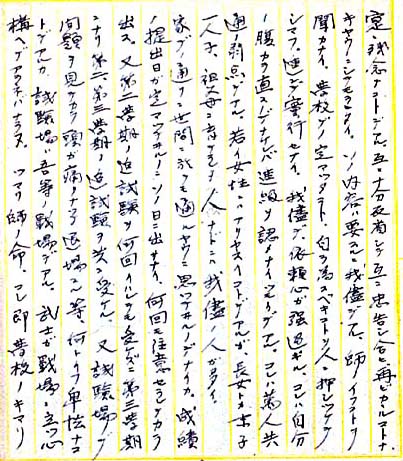 実ニ残念ナコトデス、互ニ十分反省シテ互ニ忠告シ合ヒ再ビカルコトナ
キヤウニシテモラヒタイ。ソノ内容ハ要スルニ我儘デス、師ノイフコトヲ
聞カナイ。学校デノ定マツタコト、自ラ為スベキコトヲ人ニ押シツケテ
シマフ、進ンデ実行セナイ、我儘デ依頼心ガ強過ギル、コレハ自分
ノ腹カラ直スンデナケレバ進級ヲ認メナイツモリデス、コレハ萬人共
通ノ欠点デアル、若イ女性ニハアリヤスイコトデアルガ、長女トカ末子
一人子、祖父母ニ育テラレタ人ナドニハ我儘ノ人ガ多イ
家デ通リ世間ヘ行ツテモ通ルヤウニ思ツテヰルノデナイカ、成績
ノ提出日ガ定マツテヰルノニソノ日ニ出サナイ、何回モ注意セラレテカラ
出ス。又第二学期ノ追試験ヲ何回イハレテモ受ケズニ第三学期
ニナリ第二、第三学期ノ追試験ヲ共ニ受ケル、又試験場デ
問題ヲ見テカラ頭ガ痛イナドト退場スル等、何トイフ卑怯ナコ
トデアルカ、試験場ハ吾等ノ戦場デアル、武士ガ戦場ニ立ツ心
構ヘデナケレバナラヌ。ツマリ師ノ命、コレ即学校ノキマリ